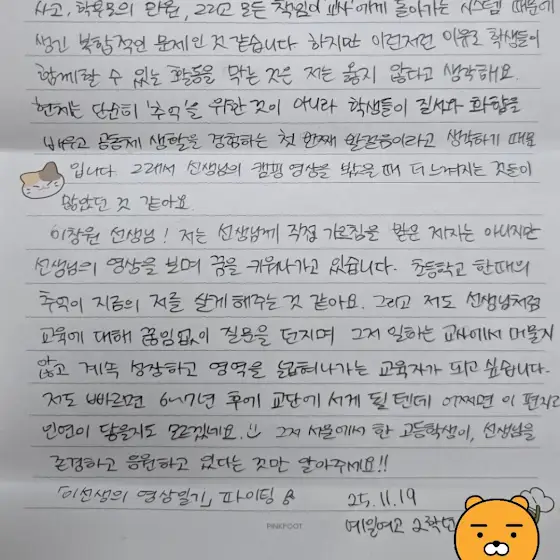 사고, 학부모의 민원, 그리고 모든 책임이 '교사'에게 돌아가는 시스템 때문에
생긴 복합적인 문제인 것 같습니다. 하지만 이런저런 이유로 학생들이
함께할 수 있는 활동을 막는 것은 저는 옳지 않다고 생각해요.
현체는 단순히 '추억'을 위한 것이 아니라 학생들이 질서와 화합을
배우고 공동체 생활을 경험하는 첫 번째 발걸음이라고 생각하기 때문
입니다. 그래서 선생님의 캠핑 영상을 봤을 때 더 느껴지는 것들이
많았던 것 같아요.
이창원 선생님! 저는 선생님께 직접 가르침을 받은 제자는 아니지만
선생님의 영상을 보며 꿈을 키워나가고 있습니다. 초등학교 한때의
추억이 지금의 저를 살게 해주는 것 같아요. 그리고 저도 선생님처럼
교육에 대해 끊임없이 질문을 던지며 그저 일하는 교사에서 머물지
않고 계속 성장하고 영역을 넓혀나가는 교육자가 되고 싶습니다.
저도 빠르면 6~7년 후에 교단에 서게 될 텐데 어쩌면 이 편지로
인연이 닿을지도 모르겠네요. 그저 서울에서 한 고등학생이, 선생님을
존경하고 응원하고 있다는 것만 알아주세요!!
「이선생의 영상일기」 파이팅 25.11.19
PINKFOOT 예일여고 2학년